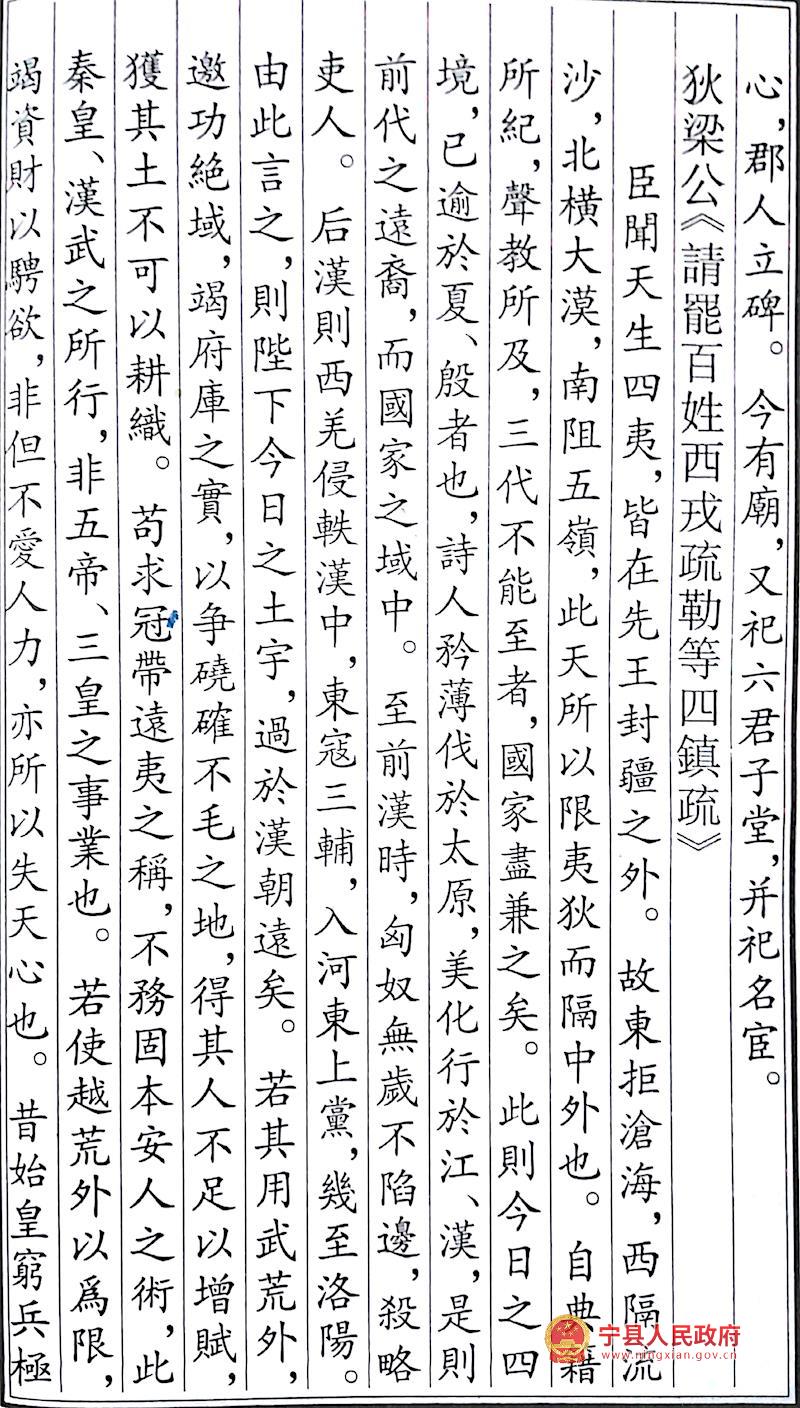 心，郡人立碑。今有廟，又祀六君子堂，并祀名宦。
狄梁公《請罷百姓西戎疏勒等四鎮疏》
臣聞天生四夷，皆在先王封疆之外。故東拒滄海，西隔流
沙，北橫大漠，南阻五嶺，此天所以限夷狄而隔中外也。自典籍
所紀，聲教所及，三代不能至者，國家盡兼之矣。此則今日之四
境，已逾於夏、殷者也，詩人矜薄伐於太原，美化行於江、漢，是則
前代之遠裔，而國家之域中。至前漢時，匈奴無歲不陷邊，殺略
吏人。后漢則西羌侵軼漢中，東寇三輔，入河東上黨，幾至洛陽。
由此言之，則陛下今日之土宇，過於漢朝遠矣。若其用武荒外，
邀功絕域，竭府庫之實，以爭磽確不毛之地，得其人不足以增賦，
獲其土不可以耕織。苟求冠帶遠夷之稱，不務固本安人之術，此
秦皇、漢武之所行，非五帝、三皇之事業也。若使越荒外以爲限，
竭資財以騁欲，非但不愛人力，亦所以失天心也。昔始皇窮兵極
宁县人民政府
www.ningxian.gov.cn